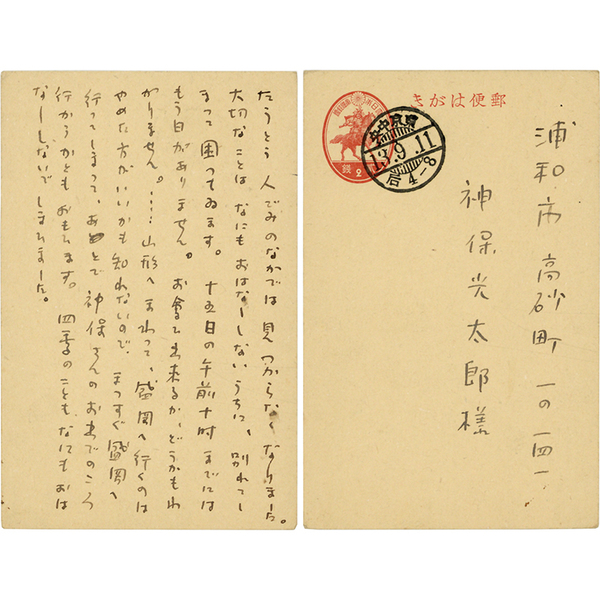 たうとう人でみのなかでは見つからなくなりました。
大切なことはなにもおはなししないうちに、別れてし
まって困つてゐます。十五日の午前十時までには
もう日がありません。お會ひ出来るか、どうかもわ
かりません。……山形へまわつて、盛岡へ行くのは
やめた方がいいかも知れないので、まつすぐ盛岡へ
行ってしまって、あとで神保さんのおいでのころ
行かうかともおもひます。四季のこともなにもおは
なししないでしまひました。
郵便はがき
大日本帝國郵便
2 錢
東京中央
13.9.11
后4-8
浦和市高砂町一の一四一
神保光太郎様